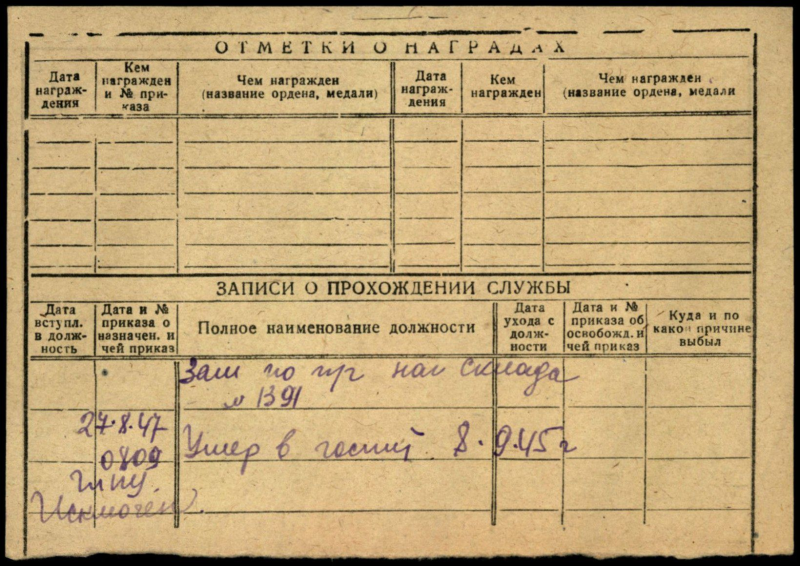 ОТМЕТКИ О НАГРАДАХ
Дата награж-дения
Кем награжден и № при-каза
Чем награжден (название ордена, медали)
Дата награж-дения
Кем награжден
Чем награжден (название ордена, медали
ЗАПИСИ О ПРОХОЖДЕНИИ СЛУЖБЫ
Дата вступл. в долж-ность
Дата и № приказа о назначен. и чей приказ
Полное наименование должности
Дата ухода с долж-ности
Дата и № приказа об освобожд. и чей приказ
Куда и по какой причине выбыл
Зам по п/ч нач склада
№ 1391
27·8·47
0809 Умер в госпит 8·9·45 г